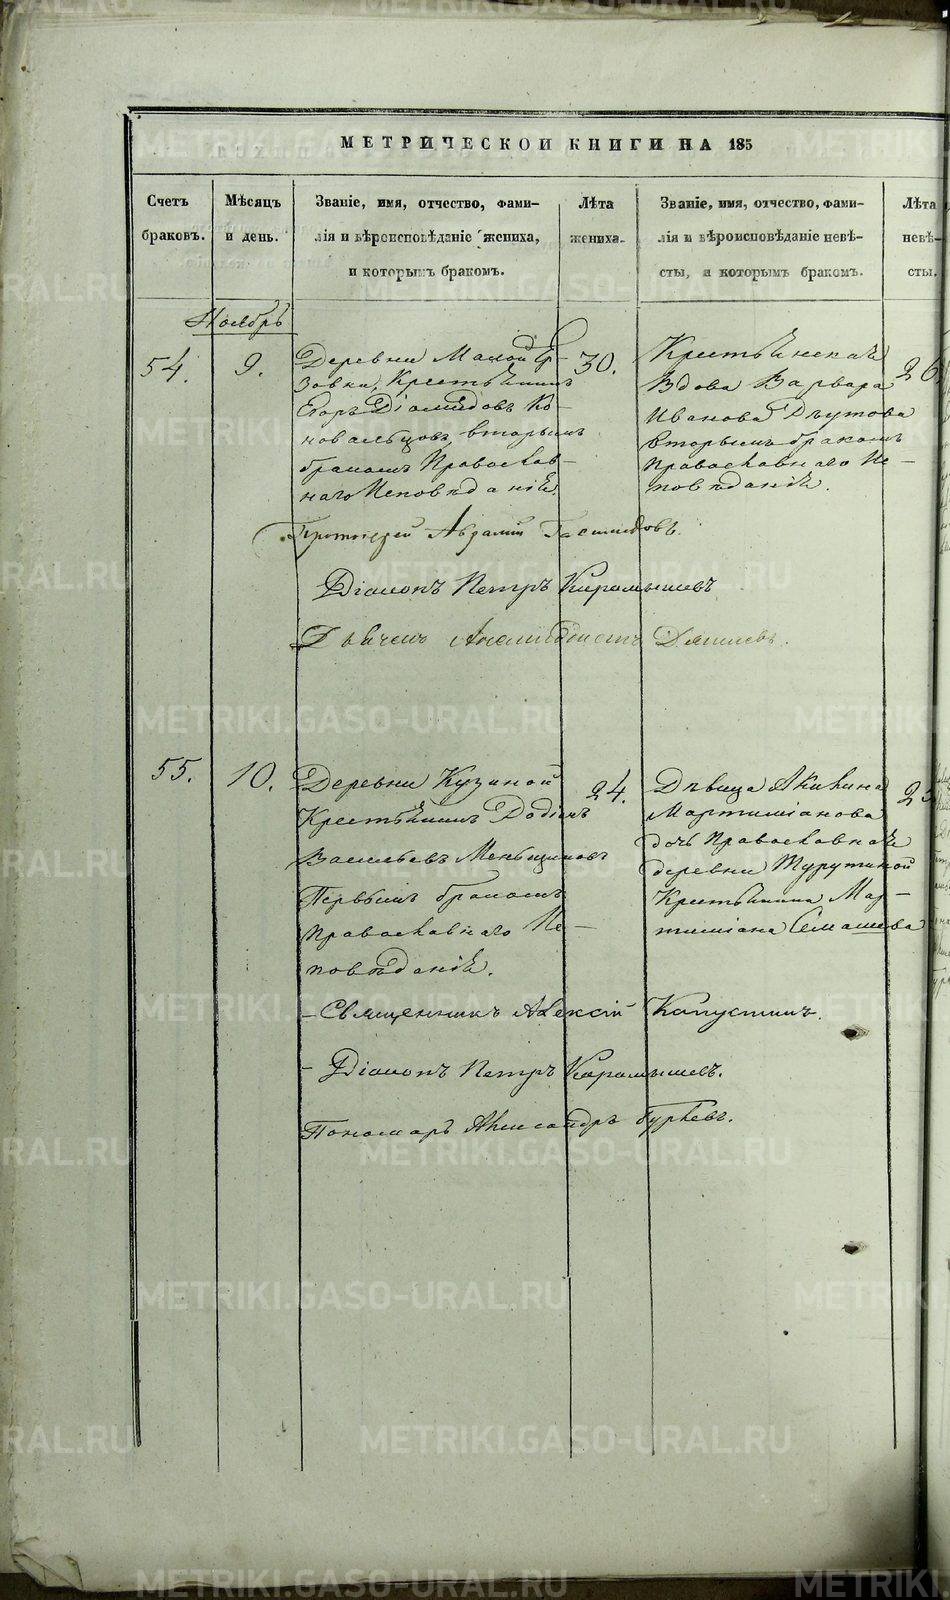 МЕТРИЧЕСКОЙ КНИГИ НА 185
Счетъ браковъ.
Мѣсяцъ и день.
Званіе, имя, отчество, фами-
лія и вѣроисповѣданіе жениха,
и которымъ бракомъ.
Лѣта жениха.
Званіе, имя, отчество, фами-
лія и вѣроисповѣданіе невѣ-
сты, и которымъ бракомъ.
Лѣта невѣ-
сты.
Ноябрь
54.
9.
Деревни Малой Ер-
зовки, Крестьянинъ
Егоръ Діомидовъ Ко-
новальцовъ, вторымъ
бракомъ Православ-
наго Исповѣданія.
30.
Крестьянская
Вдова Варвара
Иванова
вторымъ бракомъ
Православнаго Ис-
повѣданія.
26
Протоіерей Авраамій
Діаконъ Петръ Карамышевъ
55.
10.
Деревни Кузиной
Крестьянинъ Родіонъ
Васильевъ Меньщиковъ
Первымъ бракомъ
Православнаго Ис-
повѣданія.
24.
Дѣвица Акилина
Мартиміанова
дочь Православная
деревни Турутиной
Крестьянина Мар-
тиміана Семашева
2
Священникъ Алексій Капустинъ.
Діаконъ Петръ Карамышевъ.
Пономарь Александръ Гурьевъ.
METRIKI.GASO-URAL.RU